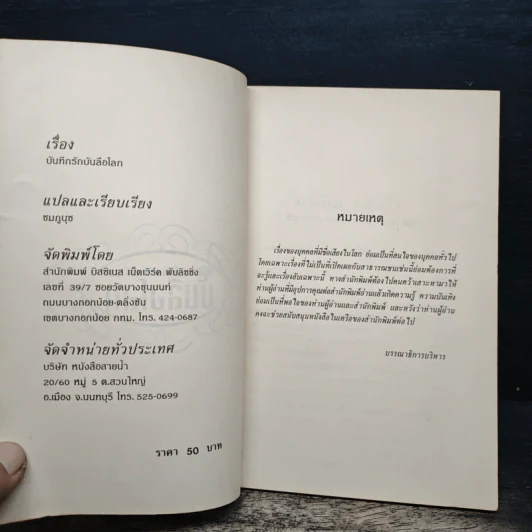 เรื่อง
บันทึกรักบันลือโลก
แปลและเรียบเรียง
ชมภูนุช
จัดพิมพ์โดย
สำนักพิมพ์ บิสซิเนส เน็ตเวิร์ค พับลิชชิ่ง
เลขที่ 39/7 ซอยวัดบางขุนนนท์
ถนนบางกอกน้อย-ตลิ่งชัน
เขตบางกอกน้อย กทม. โทร. 424-0687
จัดจำหน่ายทั่วประเทศ
บริษัท หนังสือสายน้ำ
20/60 หมู่ 5 ต.สวนใหญ่
อ.เมือง จ.นนทบุรี โทร. 525-0699
ราคา 50 บาท
หมายเหตุ
เรื่องของบุคคลที่มีชื่อเสียงในโลก ย่อมเป็นที่สนใจของบุคคลทั่วไป
โดยเฉพาะเรื่องที่ไม่เป็นที่เปิดเผยต่อสาธารณชนเช่นนี้ย่อมต้องการที่
จะรู้และเรื่องลับเฉพาะนี้ ทางสำนักพิมพ์ต้องไปค้นคว้าเสาะหามาให้
ท่านผู้อ่านที่มีอุปการคุณต่อสำนักพิมพ์อ่านแล้วเกิดความรู้ ความบันเทิง
ย่อมเป็นที่พอใจของท่านผู้อ่านและสำนักพิมพ์ และหวังว่าท่านผู้อ่าน
คงจะช่วยสนับสนุนหนังสือในเครือของสำนักพิมพ์ต่อไป
บรรณาธิการบริหาร